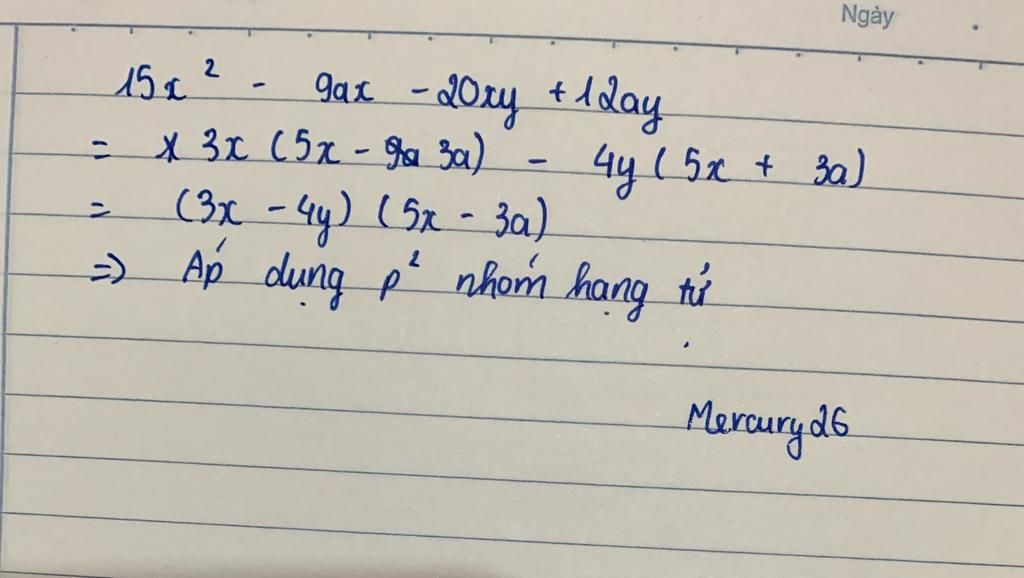 Ngày
15x² - 9ax - 20xy + 12ay
= 3x (5x - 3a) - 4y (5x + 3a)
= (3x - 4y) (5x - 3a)
=> Áp dụng p² nhóm hạng tử
Mercury26